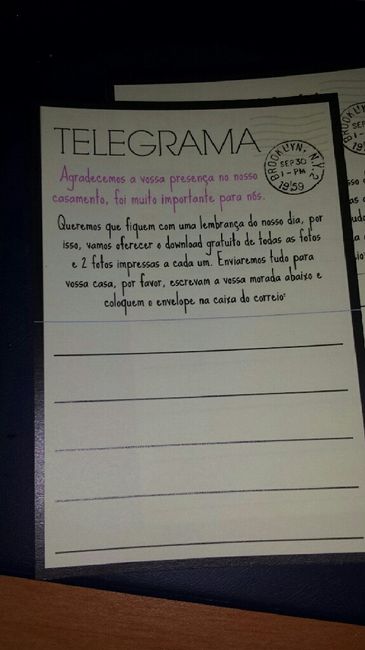 TELEGRAMA
BROOKLYN, N.Y. 2
SEP 30
1-PM
1959
Agradecemos a vossa presença no nosso
casamento, foi muito importante para nós.
Queremos que fiquem com uma lembrança do nosso dia, por
isso, vamos oferecer o download gratuito de todas as fotos
e 2 fotos impressas a cada um. Enviaremos tudo para
vossa casa, por favor, escrevam a vossa morada abaixo e
coloquem o envelope na caixa do correio